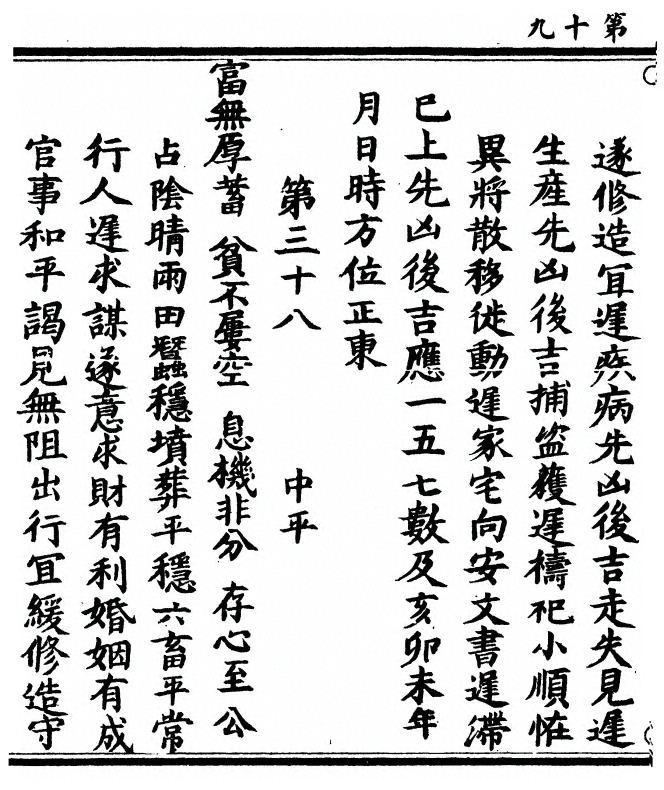 第十九
遂修造冝遲疾病先凶後吉走失見遲
生產先凶後吉捕盜獲遲禱祀小順恠
異將散移徙動遲家宅向安文書遲滯
巳上先凶後吉應一五七數及亥卯未年
月日時方位正東
第三十八 中平
富無厚蓄 貧不屢空 息機非分 存心至公
占陰晴雨田蠶穩墳葬平穩六畜平常
行人遲求謀遂意求財有利婚姻有成
官事和平謁見無阻出行冝緩修造守